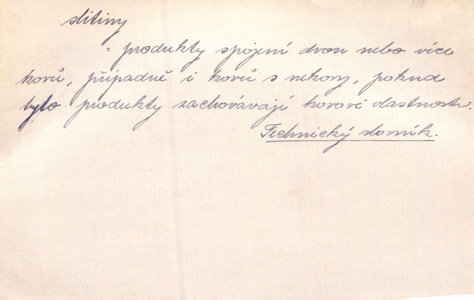 slitiny
„produkty spojení dvou nebo více
kovů, případně i kovů s nekovy, pokud
tyto produkty zachovávají kovové vlastnosti.
Technický slovník.